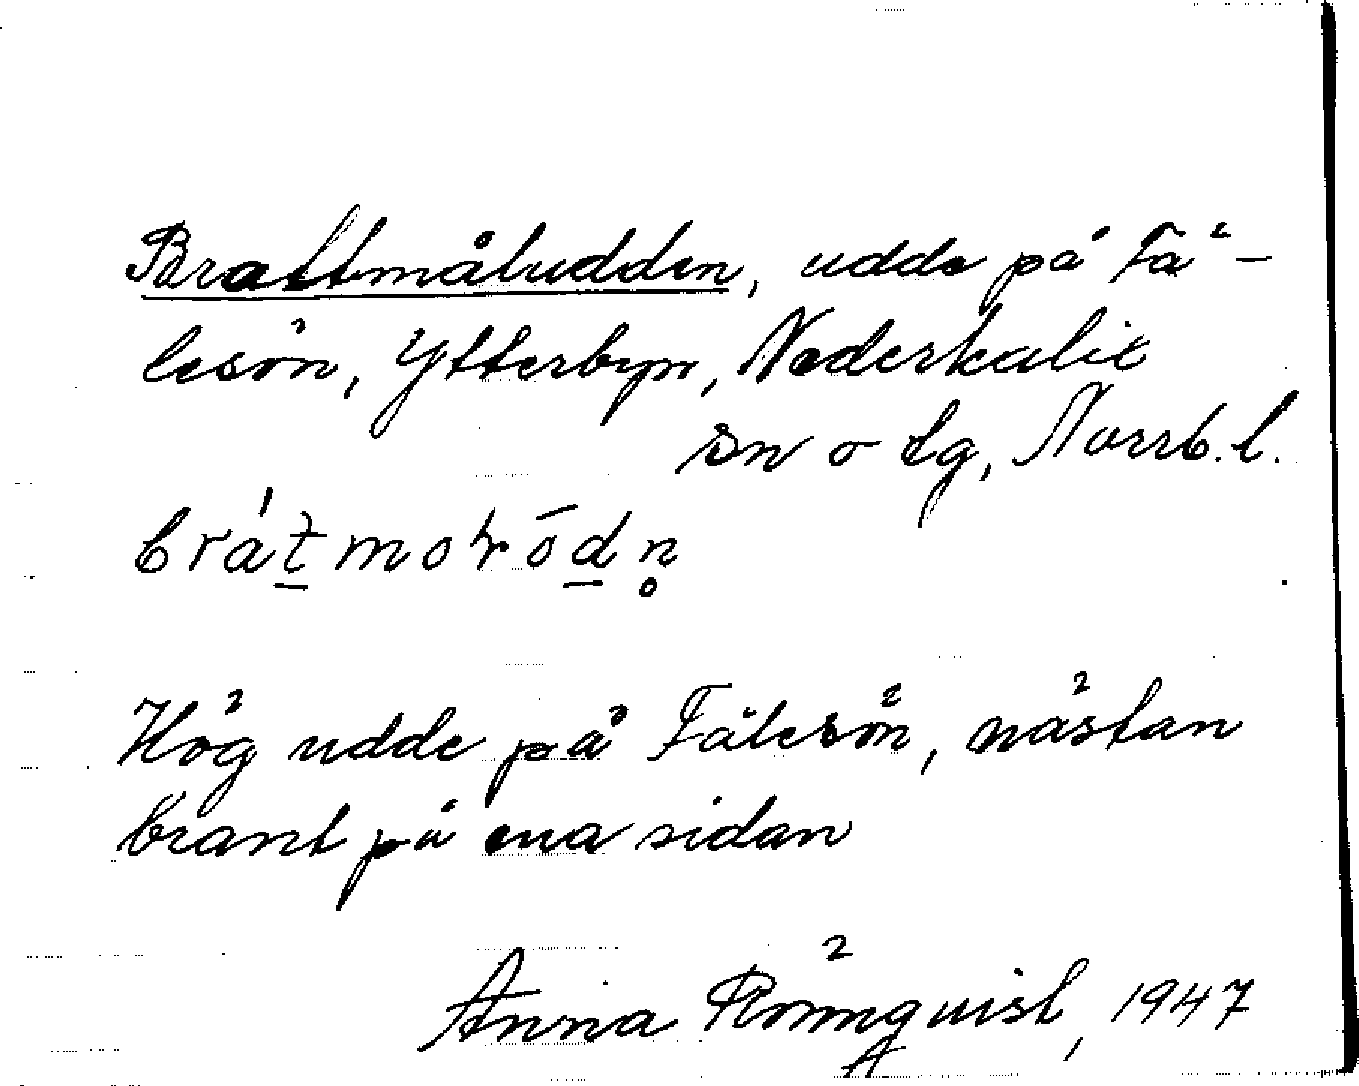 Brattmåludden, udde på Fä-
lesön, Ytterbyn, Nederkalix
sn o tg, Norrb. l.
Hög udde på Fälesön, nästan
brant på ena sidan
Anna Römquist, 1947